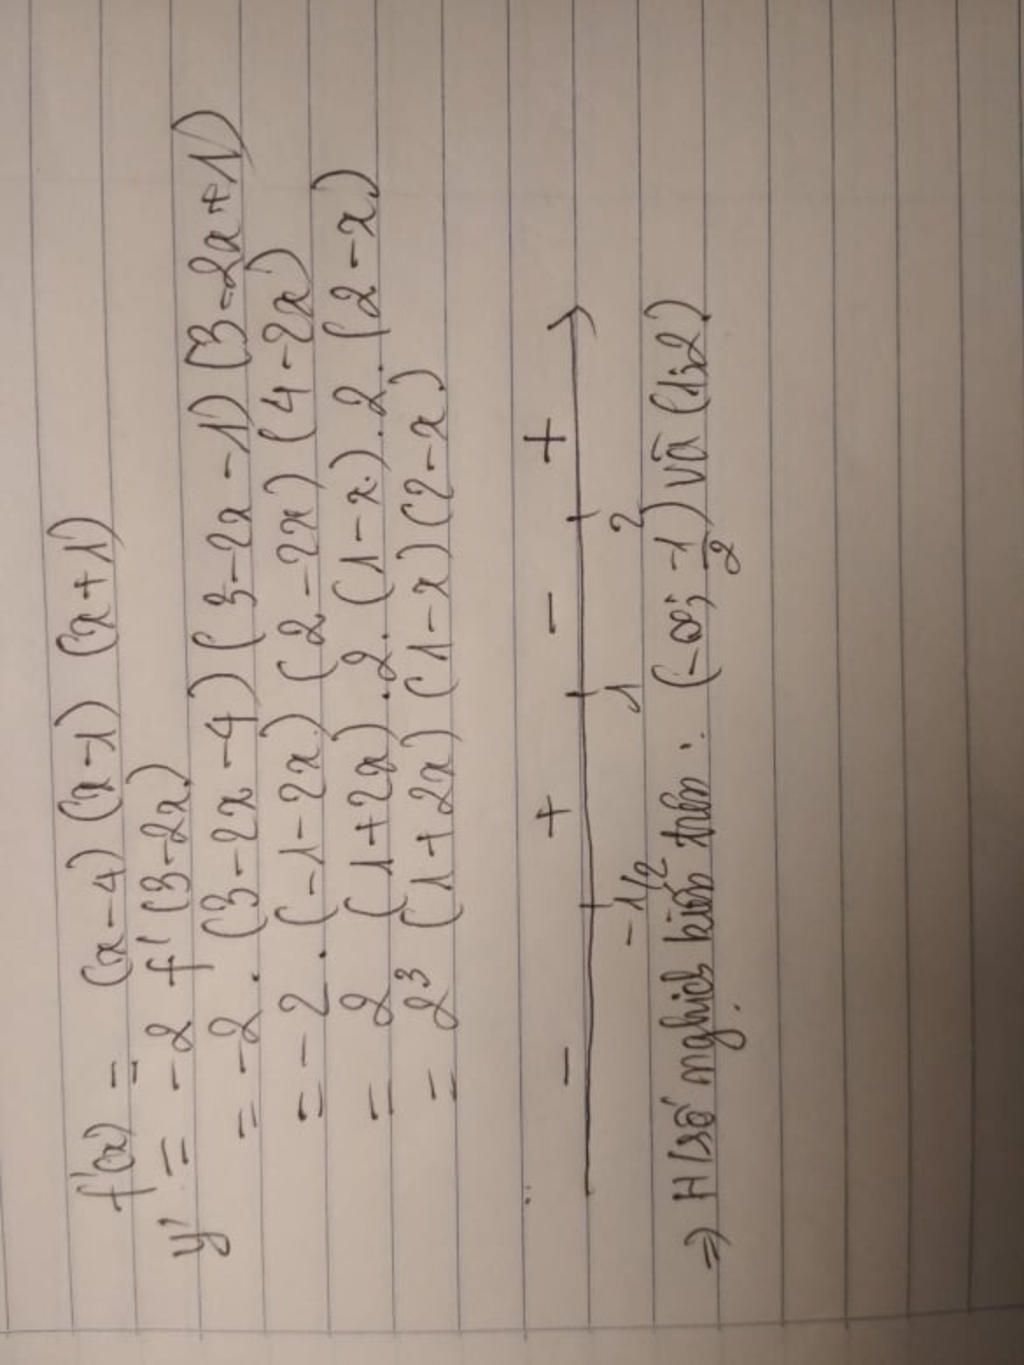 f'(x) = (x-4) (x-1) (x+1)
y' = -2 f' (3-2x)
= -2. (3-2x-4) (3-2x-1) (3-2x+1)
= -2. (-1-2x) (2-2x) (4-2x)
= 2 (1+2x) .2. (1-x) .2. (2-x)
= 2³ (1+2x) (1-x) (2-x)
- + - +
-1/2 1 2
=> H/số nghịch biến trên : (-∞; -1/2) và (1;2)